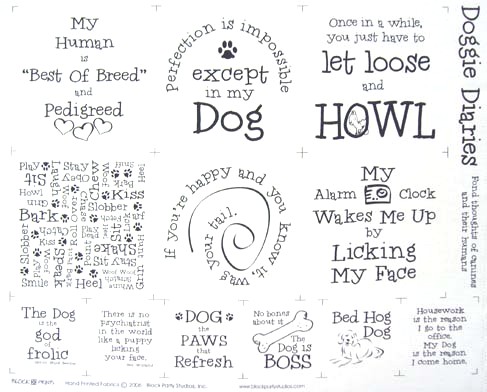 My
Human
is
"Best Of Breed"
and
Pedigreed
Perfection is impossible
except
in my
Dog
Once in a while,
you just have to
let loose
and
HOWL
Doggie Diaries
Fond thoughts of canines
and their humans
Play
Sit
Howl
Bark
Slobber
Play
Woof
Smile
Stay
Obey
Roll Over
Kiss
Speak
Heel
Chew
Kiss
Slobber
Shake
Sit
Stay
Heel
Grin
If you're happy and you know it, wag your tail.
My
Alarm Clock
Wakes Me Up
by
Licking
My Face
The Dog
is the
god
of
frolic
There is no
psychiatrist
in the world
like a puppy
licking
your face.
DOG
the
PAWS
that
Refresh
No bones
about it
The
Dog is
BOSS
Bed Hog
Dog
Housework
is the reason
I go to the
office.
My Dog
is the reason
I come home.
BLOCK PARTY
Hand Printed Fabrics © 2006 Block Party Studios, Inc. www.blockpartystudios.com